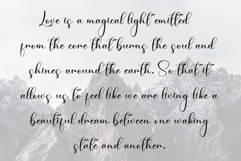 Love is a magical light emitted
from the core that burns the soul and
shines around the earth. So that it
allows us to feel like we are living like a
beautiful dream between one waking
state and another.